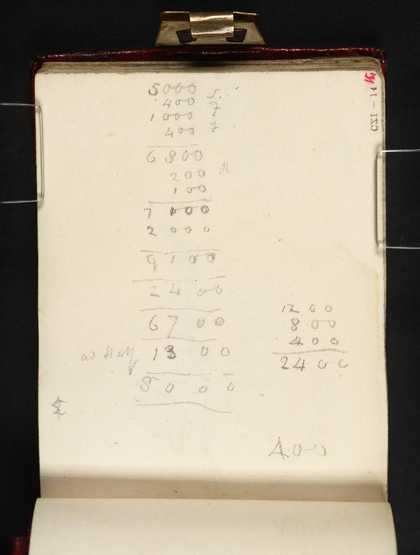 5000 5
400 7
1000 7
400 7
6800
200
100
7100
2000
9100
2400
6700
1300
8000
1200
800
400
2400
400
CZI - 14